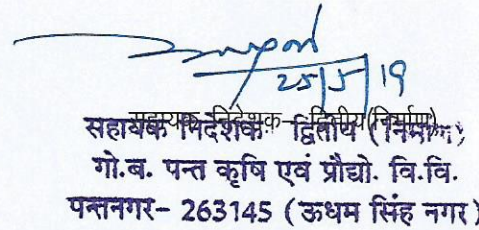 25/5/19
सहायक निदेशक - द्वितीय (निर्माण)
सहायक निदेशक द्वितीय (निर्माण)
गो.ब. पन्त कृषि एवं प्रौद्यो. वि.वि.
पन्तनगर- 263145 (ऊधम सिंह नगर)